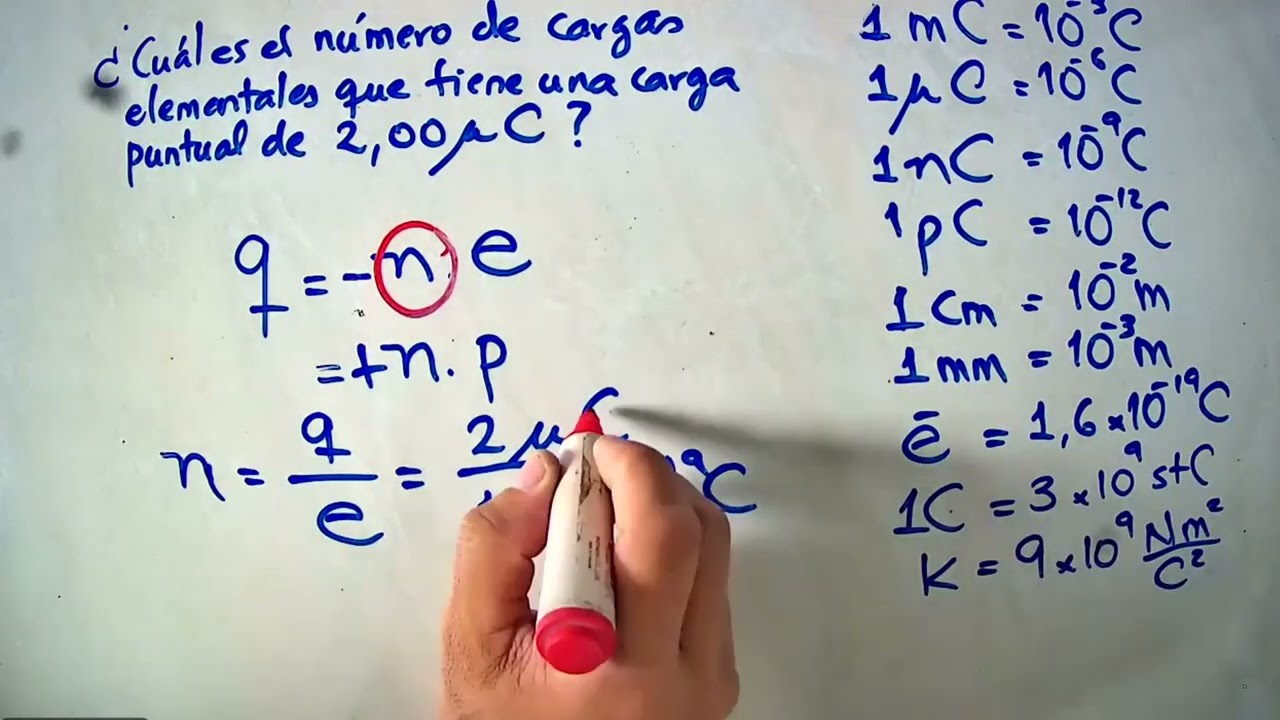 ¿Cuál es el número de cargas
elementales que tiene una carga
puntual de 2,00 μC?
q = -n. e
= +n. p
n = q/e = 2 μC
1 mC = 10⁻³C
1 μC = 10⁻⁶C
1 nC = 10⁻⁹C
1 pC = 10⁻¹²C
1 Cm = 10⁻²m
1 mm = 10⁻³m
ē = 1,6 × 10⁻¹⁹C
1C = 3 × 10⁹ stC
K = 9 × 10⁹ Nm²/C²